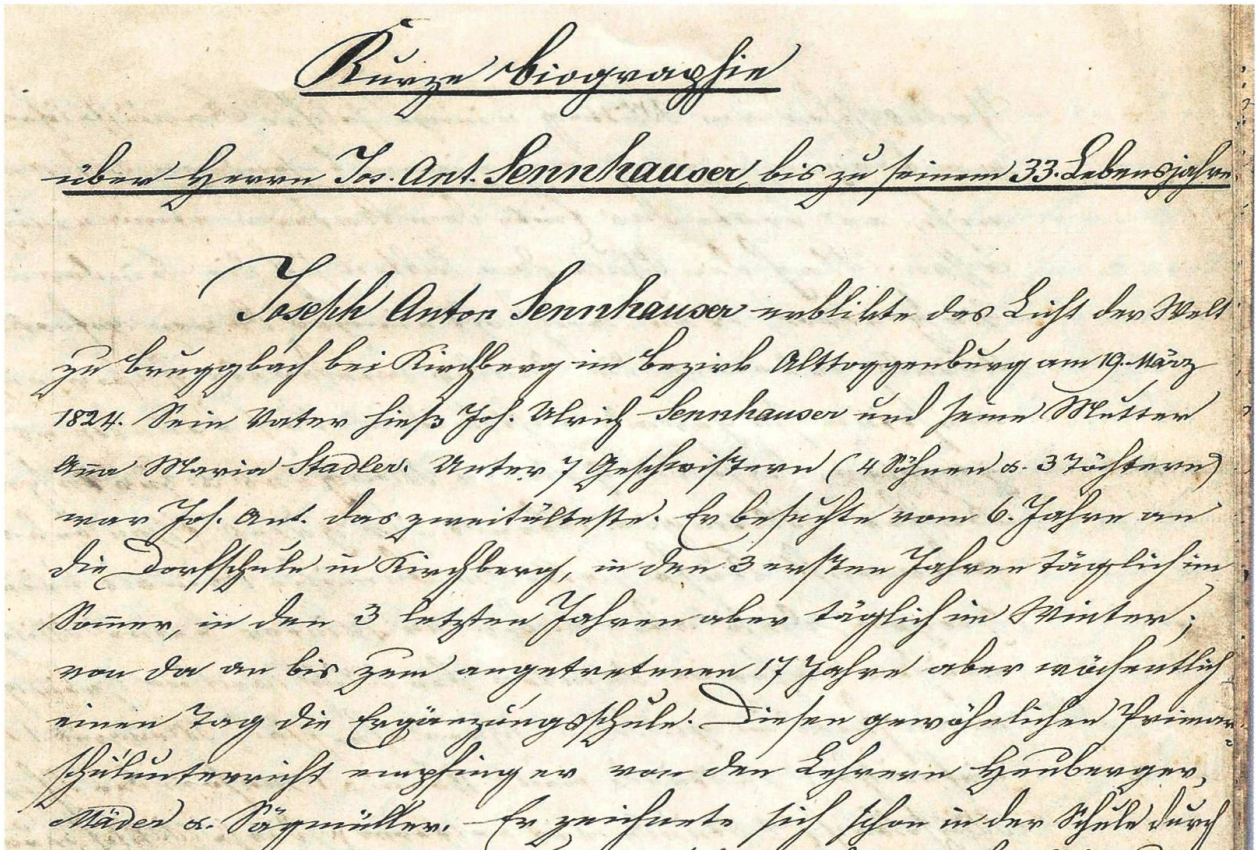 Kurze Biographie
über Herrn Jos. Ant. Sennhauser, bis zu seinem 33. Lebensjahre.
Joseph Anton Sennhauser erblikte das Licht der Welt
zu Bruggbach bei Kirchberg im Bezirk Alttoggenburg am 19. März
1824. Sein Vater hieß Joh. Ulrich Sennhauser und seine Mutter
Aña Maria Stadler. Unter 7 Geschwistern (4 Söhnen & 3 Töchtern)
war Jos. Ant. das zweitälteste. Er besuchte vom 6. Jahre an
die Dorfschule in Kirchberg, in den 3 ersten Jahren täglich im
Som̄er, in den 3 letzten Jahren aber täglich im Winter;
von da an bis zum angetretenen 17 Jahre aber wöchentlich
einen Tag die Ergänzungsschule. Diesen gewöhnlichen Primar-
schulunterricht empfing er von den Lehrern Heuberger,
Mäder & Sägmüller. Er zeichnete sich schon in der Schule durch